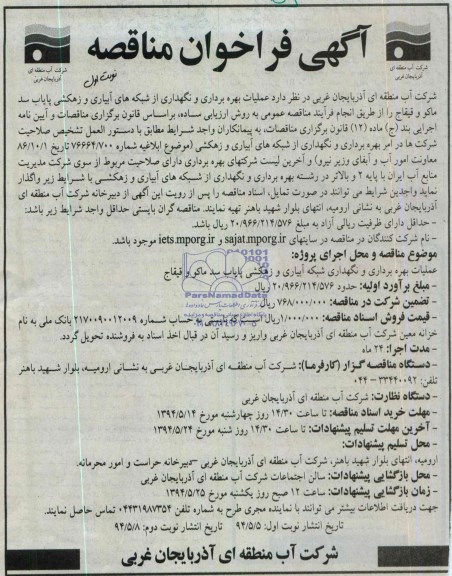 آگهی فراخوان مناقصه
شرکت آب منطقه ای
آذربایجان غربی
شرکت آب منطقه ای
آذربایجان غربی
نوبت اول
شرکت آب منطقه ای آذربایجان غربی در نظر دارد عملیات بهره برداری و نگهداری از شبکه های آبیاری و زهکشی پایاب سد
ماکو و قیقاج را از طریق انجام فرآیند مناقصه عمومی به روش ارزیابی ساده، براساس قانون برگزاری مناقصات و آیین نامه
اجرایی بند (ج) ماده (۱۲) قانون برگزاری مناقصات، به پیمانکاران واجد شرایط مطابق با دستور العمل تشخیص صلاحیت
شرکت ها در امر بهره برداری و نگهداری از شبکه های آبیاری و زهکشی (موضوع ابلاغیه شماره ۷۶۶۶۴/۷۰۰ تاریخ ۸۶/۱۰/۱
معاونت امور آب و آبفای وزیر نیرو) و آخرین لیست شرکتهای بهره برداری دارای صلاحیت مربوط از سوی شرکت مدیریت
منابع آب ایران با پایه ۲ و بالاتر در رشته بهره برداری و نگهداری از شبکه های آبیاری و زهکشی با شرایط زیر واگذار
نماید واجدین شرایط می توانند در صورت تمایل، اسناد مناقصه را پس از رویت این آگهی از دبیرخانه شرکت آب منطقه ای
آذربایجان غربی به نشانی ارومیه، انتهای بلوار شهید باهنر تهیه نمایند. مناقصه گران بایستی حداقل واجد شرایط زیر باشند:
- حداقل دارای ظرفیت ریالی آزاد به مبلغ ۲۰/۹۶۶/۲۱۴/۵۷۶ ریال باشد.
- نام شرکت کنندگان در مناقصه در سایتهای sajat.mporg.ir و iets.mporg.ir موجود باشد.
موضوع مناقصه و محل اجرای پروژه:
عملیات بهره برداری و نگهداری شبکه آبیاری و زهکشی پایاب سد ماکو و قیقاج
- مبلغ برآورد اولیه: حدود ۲۰/۹۶۶/۲۱۴/۵۷۶ ریال
- تضمین شرکت در مناقصه: ۷۶۸/۰۰۰/۰۰۰ ریال
- قیمت فروش اسناد مناقصه: ۱/۰۰۰/۰۰۰ ریال است که بایستی به حساب شماره ۲۱۷۰۰۹۰۰۱۲۰۰۹ بانک ملی به نام
خزانه معین شرکت آب منطقه ای آذربایجان غربی واریز و رسید آن در قبال اخذ اسناد به فروشنده تحویل گردد.
- مدت اجرا: ۲۴ ماه
- دستگاه مناقصه گزار (کارفرما): شرکت آب منطقه ای آذربایجان غربی به نشانی ارومیه، بلوار شهید باهنر
تلفن: ۳۳۴۴۰۰۹۲ - ۰۴۴
- دستگاه نظارت: شرکت آب منطقه ای آذربایجان غربی
- مهلت خرید اسناد مناقصه: تا ساعت ۱۴/۳۰ روز چهارشنبه مورخ ۱۳۹۴/۵/۱۴
- آخرین مهلت تسلیم پیشنهادات: تا ساعت ۱۴/۳۰ روز شنبه مورخ ۱۳۹۴/۵/۲۴
- محل تسلیم پیشنهادات:
ارومیه، انتهای بلوار شهید باهنر، شرکت آب منطقه ای آذربایجان غربی -دبیرخانه حراست و امور محرمانه.
- محل بازگشایی پیشنهادات: سالن اجتماعات شرکت آب منطقه ای آذربایجان غربی
- زمان بازگشایی پیشنهادات: ساعت ۱۲ صبح روز یکشنبه مورخ ۱۳۹۴/۵/۲۵
جهت دریافت اطلاعات بیشتر می توانند با نماینده مجری طرح به شماره تلفن ۰۴۴۳۱۹۸۷۳۵۴ تماس حاصل نمایند.
تاریخ انتشار نوبت اول: ۹۴/۵/۵ تاریخ انتشار نوبت دوم: ۹۴/۵/۸
شرکت آب منطقه ای آذربایجان غربی
ParsNamadData